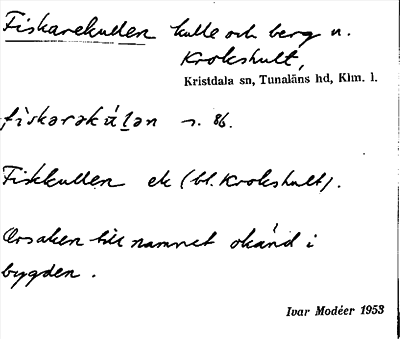 Fiskarekullen kulle och berg n.
Krokshult,
Kristdala sn, Tunaläns hd, Klm. l.
fiskarəkúlən s. 86.
Fiskkullen ek (bl. Krokshult).
Orsaken till namnet okänd i
bygden.
Ivar Modéer 1953